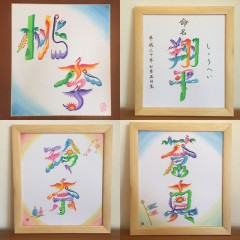 桃李
命名
翔平
しょうへい
平成三十年七月五日生
玲奈
蒼真